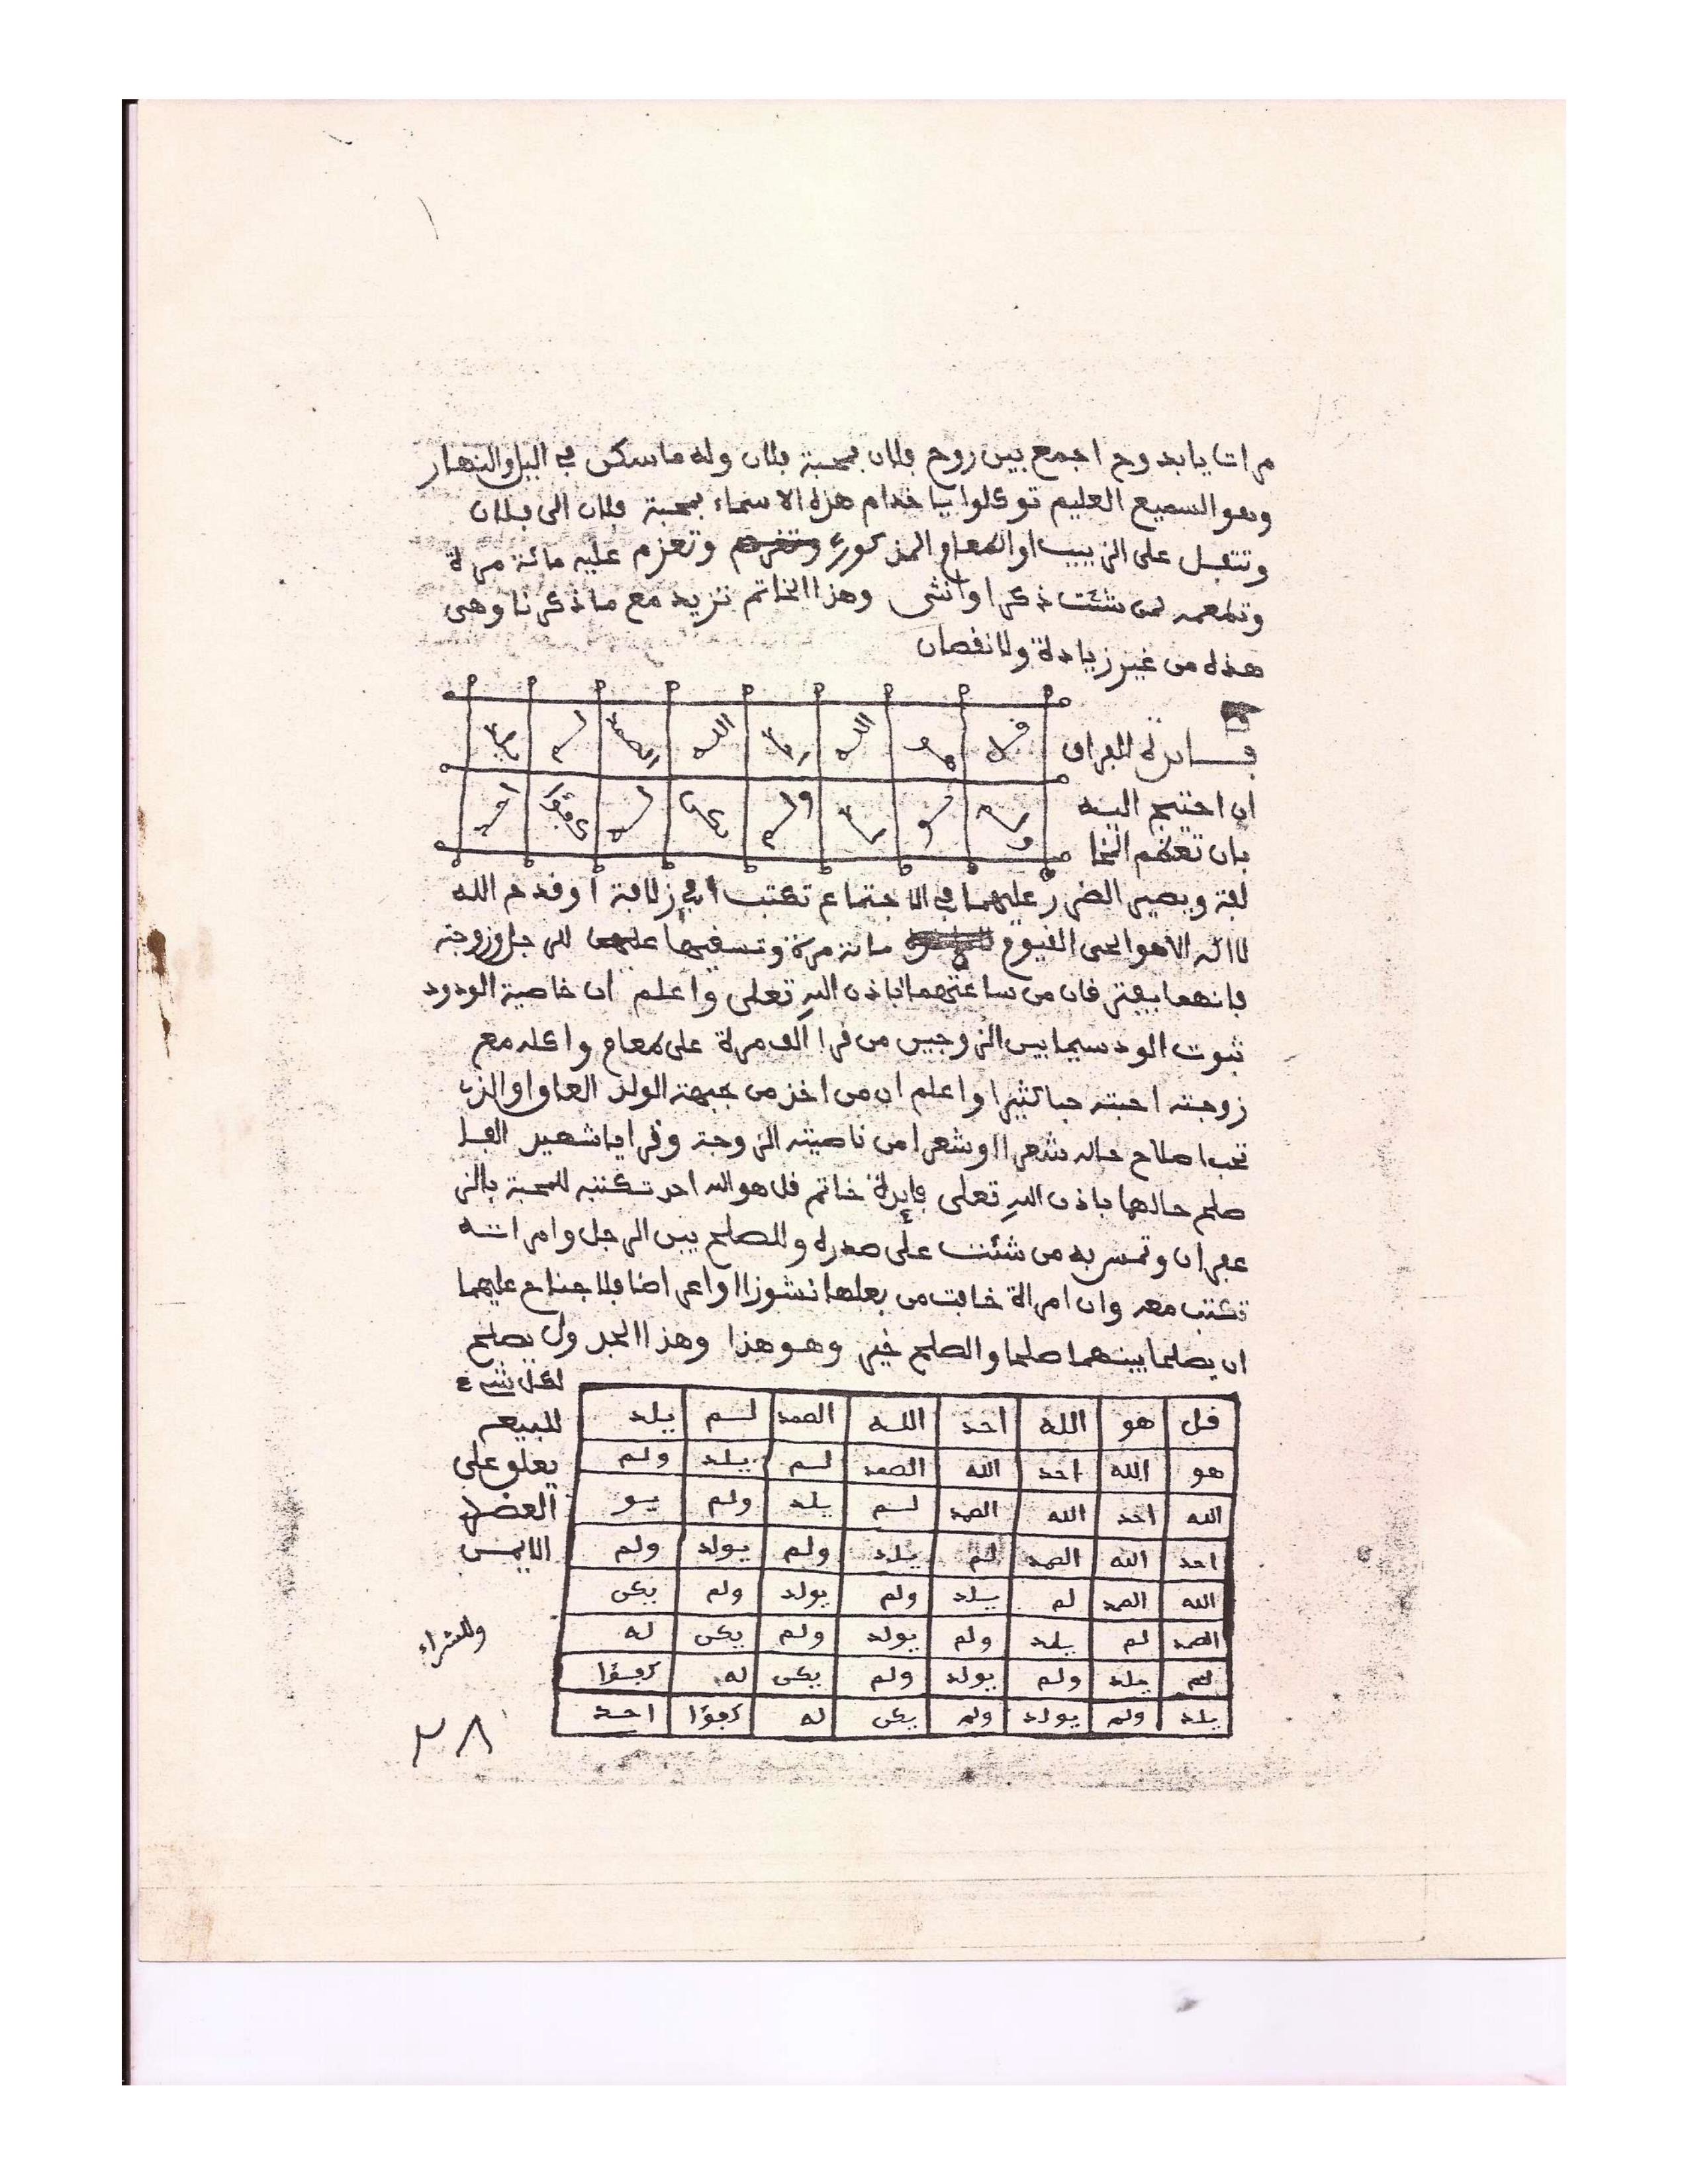 مرات يا بدوح اجمع بين روح فلان بمحبة فلان وله ما سكن في اليل والنهار
وهو السميع العليم توكلوا يا خدام هذه الاسماء بمحبة فلان الى فلان
وتتفل على الزبيب او الطعام المذكور وتعزم عليه مائة مرة
وتطعمه لمن شئت ذكرا او انثى وهذا الخاتم تزيد مع ما ذكرنا وهى
هذه من غير زيادة ولا نقصان
قل هو الله احد الله الصمد لم يلد
ولم يو لد ولم يكن له كفؤا احد
فايدة للفراق
ان احتيج اليه
بان تعظم المخا
لفة ويصير الضرر عليهما في الاجتماع تكتب في زلافة او قدح الله
لا اله الا هو الحى القيوم مائة مرة وتسقيها للرجل وزوجته
فانهما يفترفان من ساعتهما باذن الله تعلى واعلم ان خاصية الودود
ثبوت الود سيما بين الزوجين من قرا الف مرة على طعام واكله مع
زوجته احبته حبا كثيرا واعلم ان من اخذ من جبهة الولد العاق او الذي
تحب اصلاح حاله شعرا او شعرا من ناصيته الزوجة وقرا يا شهيد الفا
صلح حالهما باذن الله تعلى فايدة خاتم قل هو الله احد تكتبه للمحبة بالز
عفران وتمس به من شئت على صدره وللصلح بين الرجل وامراته
تكتب معه وان امراة خافت من بعلها نشوزا او اعراضا فلا جناح عليهما
ان يصلحا بينهما صلحا والصلح خير وهو هذا وهذا الجدول يصلح
لكل شيء
للبيع
يعلو على
العضد
الايمن
وللشراء
قل هو الله احد الله الصمد لم يلد
هو الله احد الله الصمد لم يلد ولم
الله احد الله الصمد لم يلد ولم يو
احد الله الصمد لم يلد ولم يولد ولم
الله الصمد لم يلد ولم يولد ولم يكن
الصمد لم يلد ولم يولد ولم يكن له
لم يلد ولم يولد ولم يكن له كفؤا
يلد ولم يولد ولم يكن له كفؤا احد
٢٨